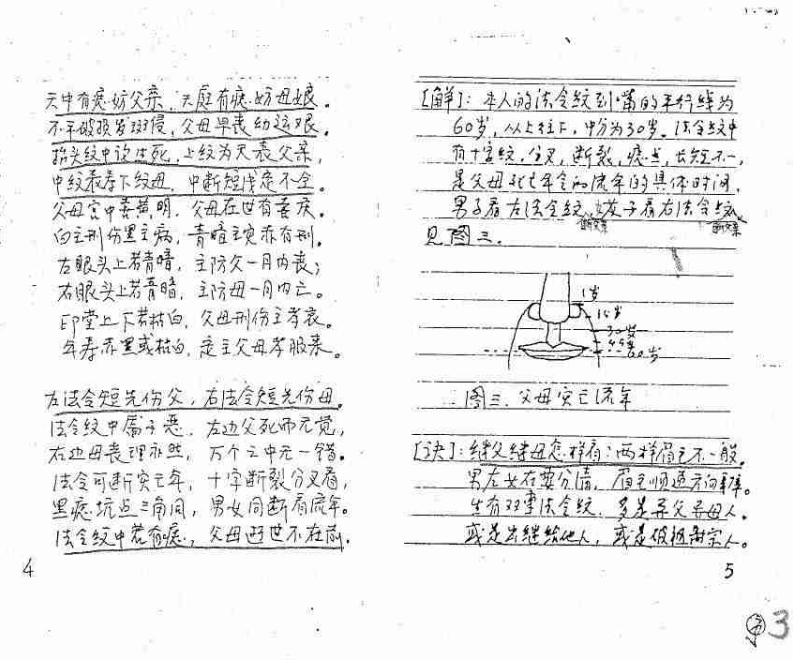 天中有痣妨父亲，天庭有痕妨母娘。
不平破损发斑侵，父母早丧幼运艰。
抬头纹中论生死，上纹为天表父亲，
中纹表寿下纹母，中断短浅是不全。
父母宫中喜黄明，父母在世有喜庆。
白主刑伤黑主病，青暗主灾赤有刑。
左眼头上若青暗，主防父一月内丧；
右眼头上若青暗，主防母一月内亡。
印堂上下若枯白，父母刑伤主孝哀。
年寿赤黑或枯白，定主父母孝服来。
左法令短先伤父，右法令短先伤母。
法令纹中属子恶，左边父死而无觉，
右边母丧理亦然，万个之中无一错。
法令可断灾亡年，十字断裂分叉看，
黑痣坑点三角同，男女同断看流年。
法令纹中若有痣，父母逝世不在前。
4
[解]：本人的法令纹到嘴的平行线为
60岁，从上往下，中分为30岁。法令纹中
有十字纹，分叉，断裂，痣点，长短不一，
是父母死亡年令和流年的具体时间，
男子看左法令纹 女子看右法令纹
见图三．
1岁
15岁
30岁
45岁
60岁
图三．父母灾亡流年
[诀]：继父继母怎样看：两样眉毛不一般。
男左女右要分清，眉毛顺逆方向
生有双重法令纹，多是异父异母人。
或是出继给他人，或是破祖谢宗人。
5
3